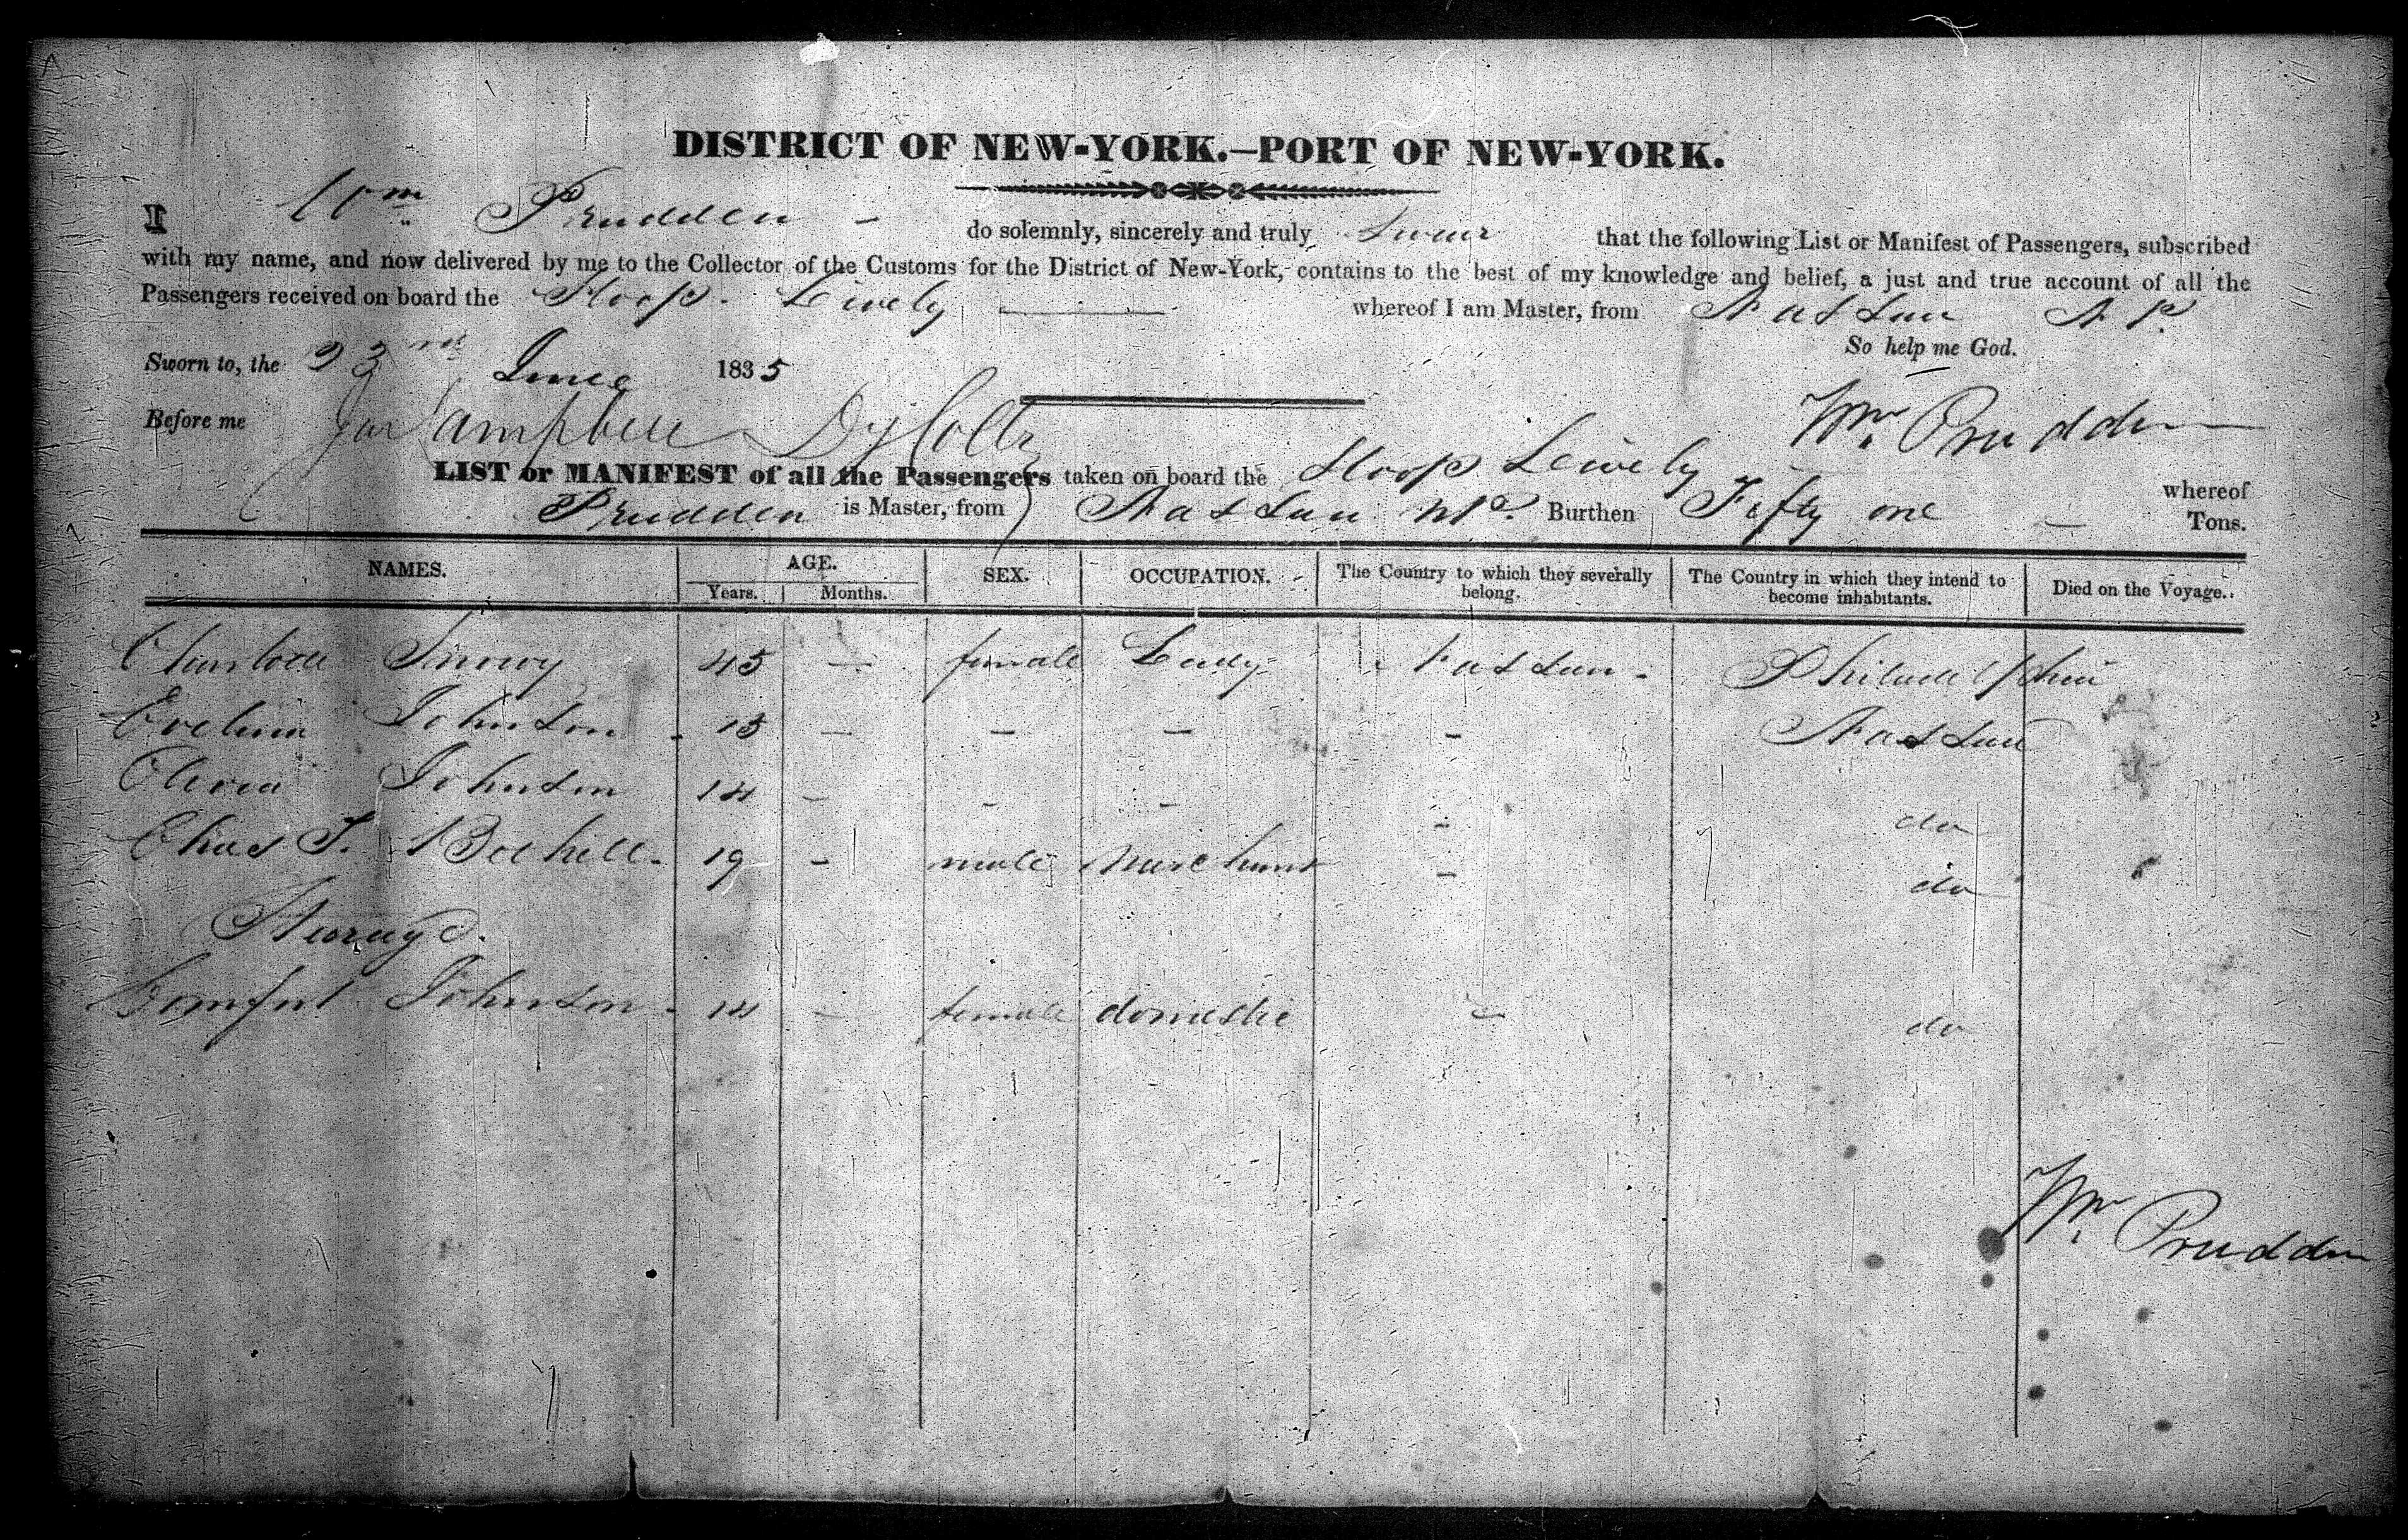 DISTRICT OF NEW-YORK.—PORT OF NEW-YORK.
I Wm Prudden - do solemnly, sincerely and truly swear that the following List or Manifest of Passengers, subscribed
with my name, and now delivered by me to the Collector of the Customs for the District of New-York, contains to the best of my knowledge and belief, a just and true account of all the
Passengers received on board the Sloop Lively whereof I am Master, from Nassau N P.
So help me God.
Sworn to, the 23rd June 1835
Wm Prudden
Before me Campbell Dy Collr
LIST or MANIFEST of all the Passengers taken on board the Sloop Lively whereof
Prudden is Master, from Nassau NP. Burthen Fifty one Tons.
NAMES. AGE. SEX. OCCUPATION. The Country to which they severally belong. The Country in which they intend to become inhabitants. Died on the Voyage.
Years. Months.
Charlotte 45 - female Lady Nassau - Philadelphia
Johnson 13 - - - - Nassau
Johnson 14 - - - - do
Chas T. Bethell 19 - male Merchant - do
Steerage.
Johnson 14 - female domestic - do
Wm Prudden